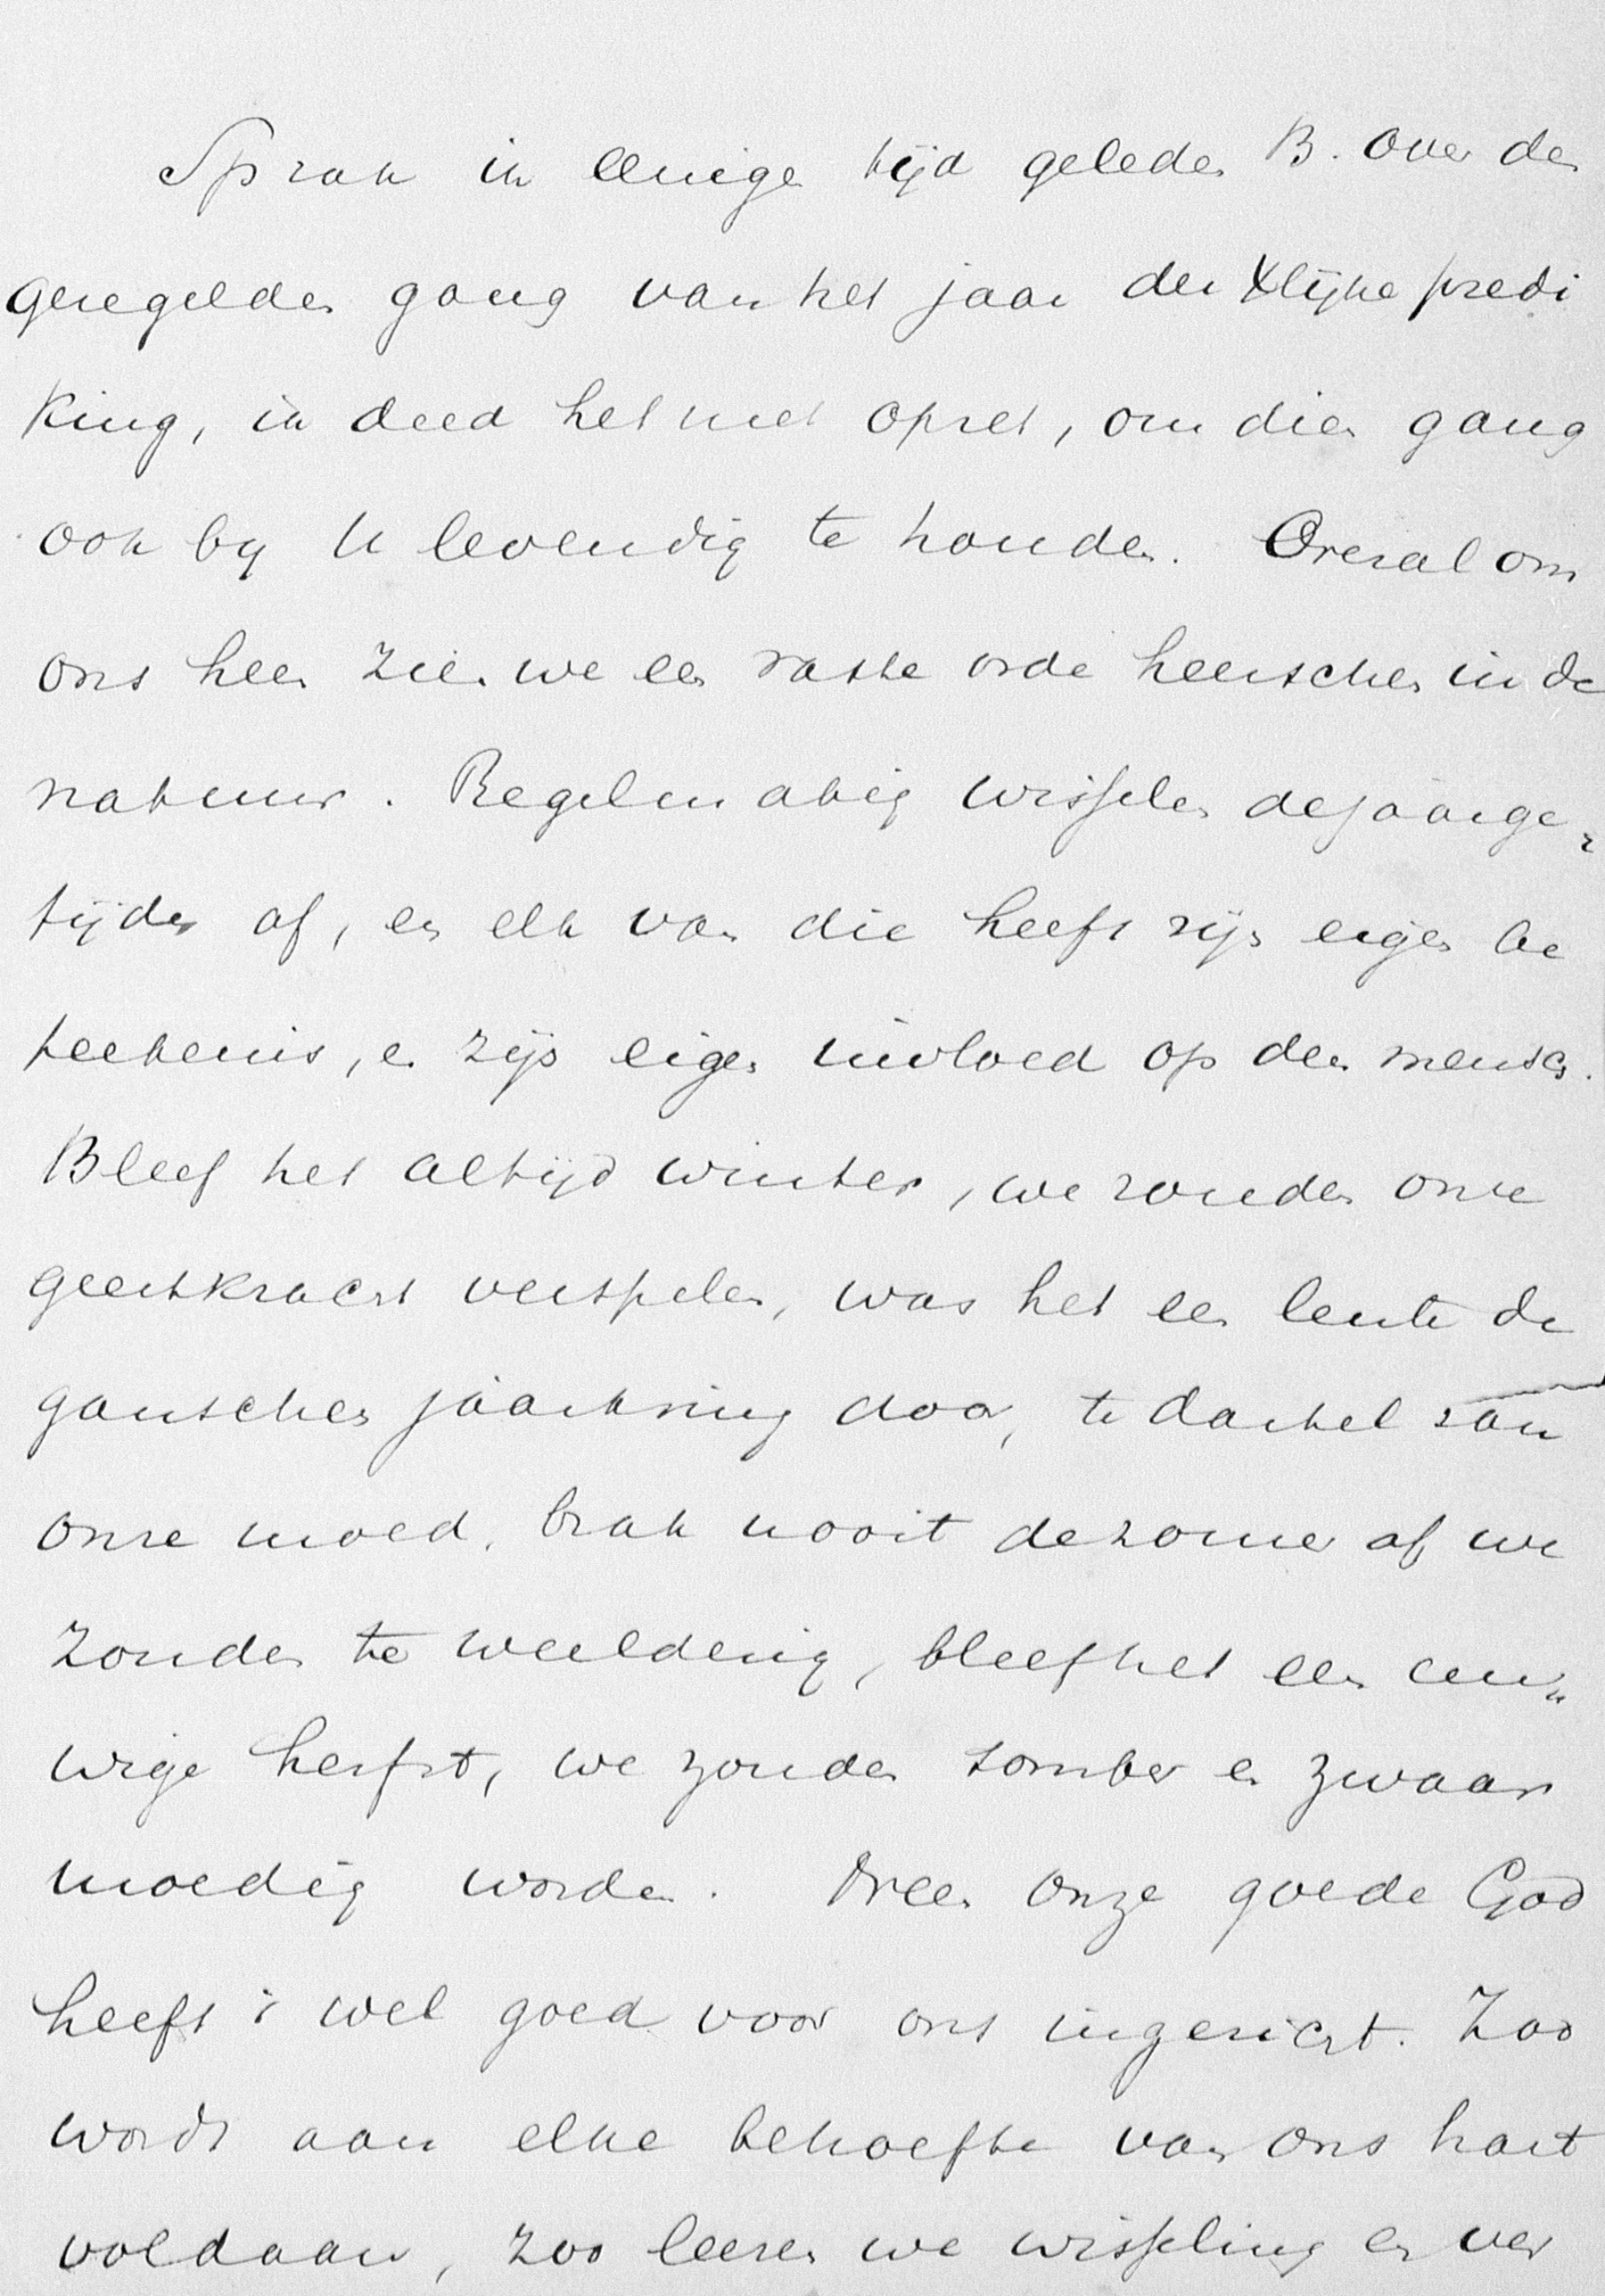 Sprak ik eenigen tijd geleden B. over den
geregelden gang van het jaar der Xlijke predi
king, ik deed het met opzet, om dien gang
ook by U levendig te houden. Overal om
ons heen zien we een vaste orde heerschen in de
natuur. Regelmatig wisselen de jaarge„
tijden af, en elk van die heeft zijn eigen be
teekenis, en zijn eigen invloed op den mensch.
Bleef het altijd winter, we zouden onze
geestkracht verspelen, was het een lente de
ganschen jaarkring door, te dartel zou
onze moed, brak nooit de zomer af we
zouden te weelderig, bleef het een eeu„
wige herfst, we zouden somber en zwaar
moedig worden. Neen onze goede God
heeft 't wel goed voor ons ingericht. Zoo
wordt aan elke behoefte van ons hart
voldaan, zoo leeren we wisseling en ver